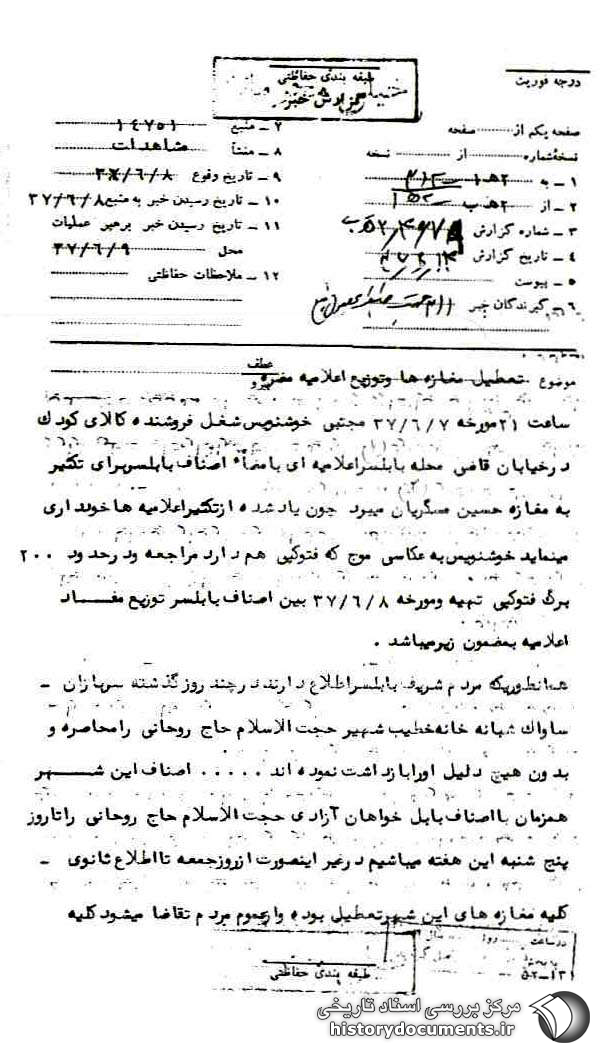 طبقه بندی حفاظتی
گزارش خبر
درجه فوریت
صفحه یکم از صفحه
نسخه شماره از نسخه
۱ ـ به
۲ ـ از
۳ ـ شماره گزارش
۴ ـ تاریخ گزارش
۵ ـ پیوست
۶ ـ گیرندگان خبر
۷ ـ منبع ۱۴۷۵۱
۸ ـ منشأ مشاهدات
۹ ـ تاریخ وقوع ۳۷/۶/۸
۱۰ ـ تاریخ رسیدن خبر به منبع ۳۷/۶/۸
۱۱ ـ تاریخ رسیدن خبر برهبر عملیات
محل ۳۷/۶/۹
۱۲ ـ ملاحظات حفاظتی
موضوع تعطیل مغازه ها وتوزیع اعلامیه مضره
عطف
پیرو
ساعت ۲۱مورخه ۳۷/۶/۷ مجتبی خوشنویس شغل فروشنده کالای کودک
درخیابان قاضی محله بابلسراعلامیه ای بامضاء اصناف بابلسربرای تکثیر
به مغازه حسین مسگریان میبرد چون یاد شده ازتکثیراعلامیه ها خودداری
مینماید خوشنویس به عکاسی موج که فتوکپی هم دارد مراجعه ودرحدود ۲۰۰
برگ فتوکپی تهیه ومورخه ۳۷/۶/۸ بین اصناف بابلسر توزیع مفــاد
اعلامیه بمضمون زیرمیباشد .
همانطوریکه مردم شریف بابلسراطلاع دارند درچند روزگذشته سربازان ـ
ساواک شبانه خانه خطیب شهیر حجت الاسلام حاج روحانی رامحاصره و
بدون هیچ دلیل اورا بازداشت نموده اند ..... اصناف این شــهر
همزمان بااصناف بابل خواهان آزادی حجت الاسلام حاج روحانی راتاروز
پنج شنبه این هفته میباشیم درغیر اینصورت ازروزجمعه تااطلاع ثانوی ـ
کلیه مغازه های این شهرتعطیل بوده وازعموم مردم تقاضا میشود کلیه
طبقه بندی حفاظتی
درساعت روز
مرکز بررسی اسناد تاریخی
historydocuments.ir